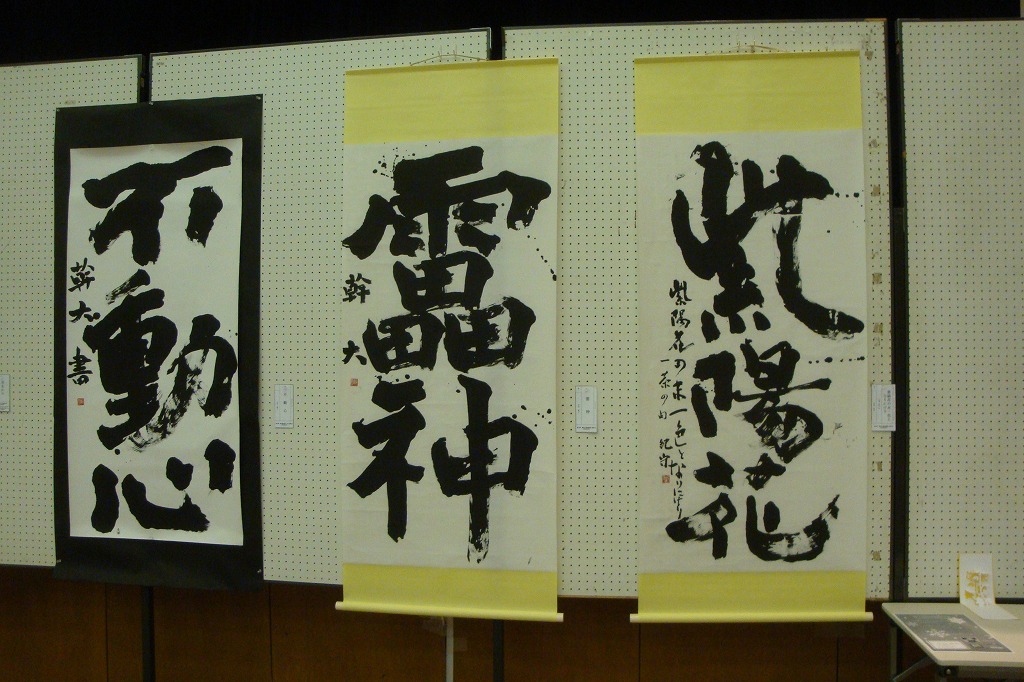 紫陽花
紫陽花の末一色となりにけり
一茶の句
靁神
幹大
不動心
幹大書